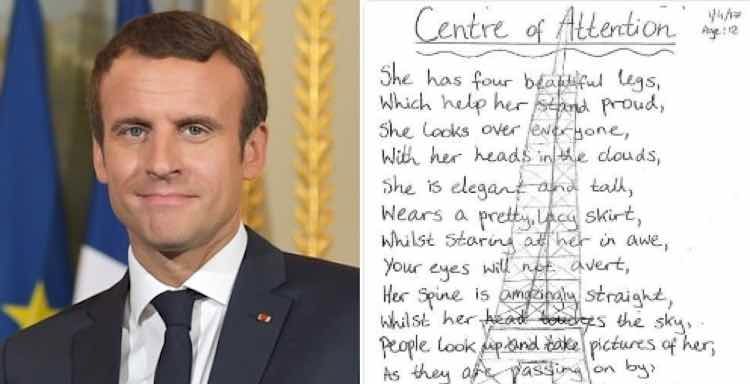 Centre of Attention
1/4/17
Age: 12
She has four beautiful legs,
Which help her stand proud,
She looks over everyone,
With her heads in the clouds,
She is elegant and tall,
Wears a pretty, lacy skirt,
Whilst staring at her in awe,
Your eyes will not avert,
Her spine is amazingly straight,
Whilst her head touches the sky,
People look up and take pictures of her,
As they are passing on by,